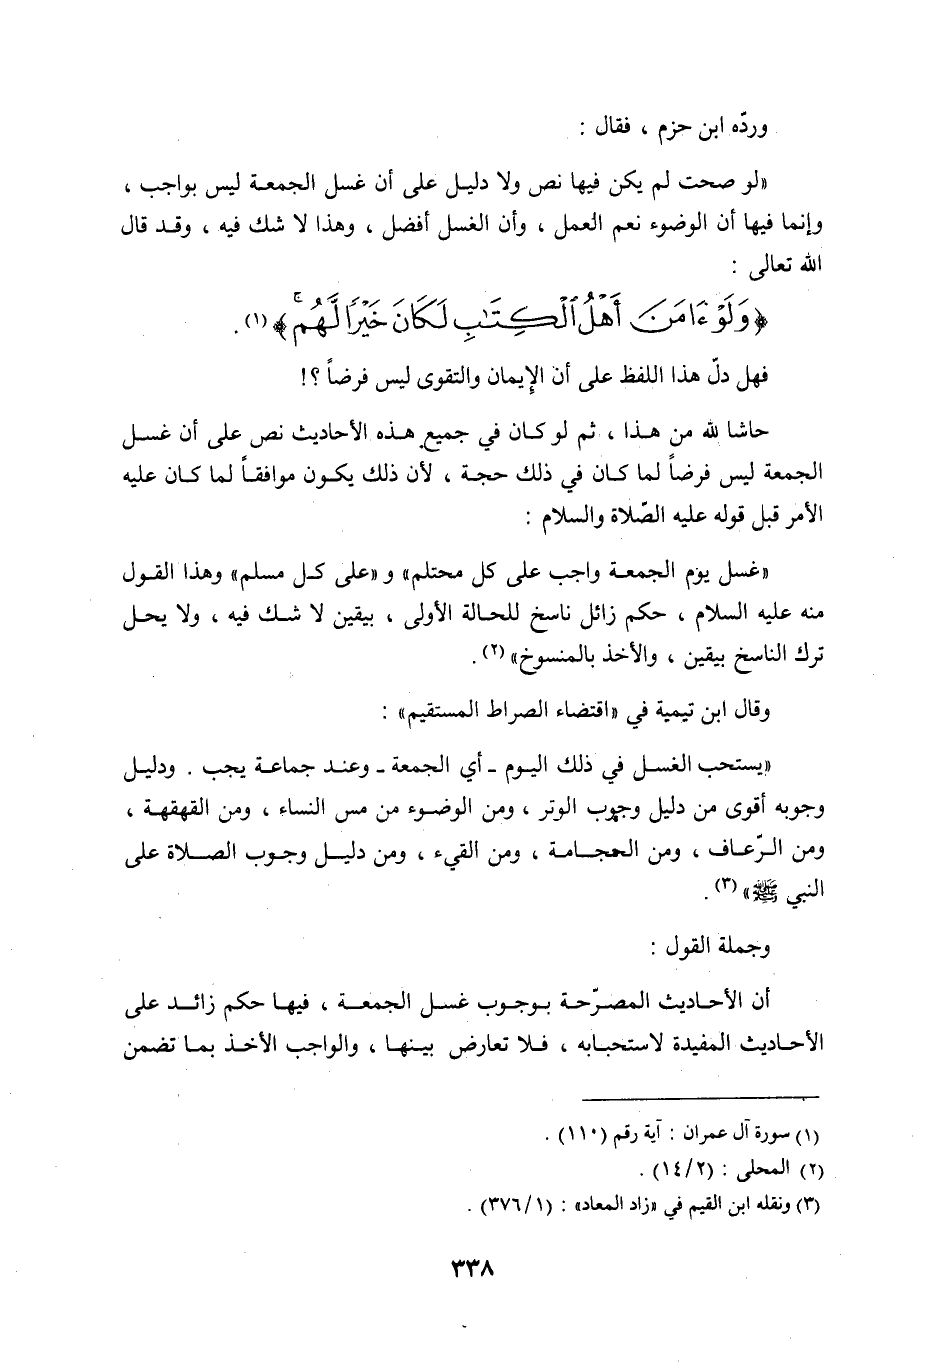 وردّه ابن حزم ، فقال :
«لو صحت لم يكن فيها نص ولا دليل على أن غسل الجمعة ليس بواجب ،
وإنما فيها أن الوضوء نعم العمل ، وأن الغسل أفضل ، وهذا لا شك فيه ، وقد قال
الله تعالى :
﴿وَلَوْ ءَامَنَ أَهْلُ ٱلْكِتَٰبِ لَكَانَ خَيْرًا لَّهُم ۚ﴾(١) .
فهل دلّ هذا اللفظ على أن الإيمان والتقوى ليس فرضاً ؟!
حاشا لله من هذا ، ثم لو كان في جميع هذه الأحاديث نص على أن غسل
الجمعة ليس فرضاً لما كان في ذلك حجة ، لأن ذلك يكون موافقاً لما كان عليه
الأمر قبل قوله عليه الصّلاة والسلام :
«غسل يوم الجمعة واجب على كل محتلم» و «على كل مسلم» وهذا القول
منه عليه السلام ، حكم زائل ناسخ للحالة الأولى ، بيقين لا شك فيه ، ولا يحل
ترك الناسخ بيقين ، والأخذ بالمنسوخ»(٢) .
وقال ابن تيمية في «اقتضاء الصراط المستقيم» :
«يستحب الغسل في ذلك اليوم ـ أي الجمعة ـ وعند جماعة يجب . ودليل
وجوبه أقوى من دليل وجوب الوتر ، ومن الوضوء من مس النساء ، ومن القهقهة ،
ومن الرّعاف ، ومن الحجامة ، ومن القيء ، ومن دليل وجوب الصلاة على
النبي ﷺ»(٣) .
وجملة القول :
أن الأحاديث المصرّحة بوجوب غسل الجمعة ، فيها حكم زائد على
الأحاديث المفيدة لاستحبابه ، فلا تعارض بينها ، والواجب الأخذ بما تضمن
(١) سورة آل عمران : آية رقم (١١٠) .
(٢) المحلى : (١٤/٢) .
(٣) ونقله ابن القيم في «زاد المعاد» : (٣٧٦/١) .
٣٣٨